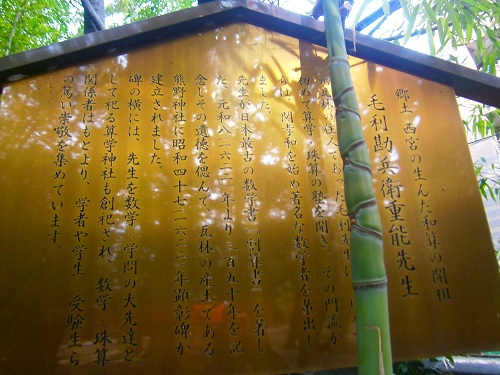 郷土 西宮の生んだ和算の開祖
毛利勘兵衛重能先生
住人であった毛利
初めて算学 珠算の塾を開き、その門流か
らは 関孝和を始め著名な数学者を輩出し
ました。
先生が日本最古の数学書「割算書」を著し
た 元和八(一六二二)年より三百五十年を記
念しその遺徳を偲んで 瓦林の産土である
熊野神社に昭和四十七(一九七二)年顕彰碑が
建立されました。
碑の横には、先生を数学 学問の大先達と
して祀る算学神社も創祀され、数学 珠算
関係者はもとより、学者や学生 受験生ら
の篤い崇敬を集めています。